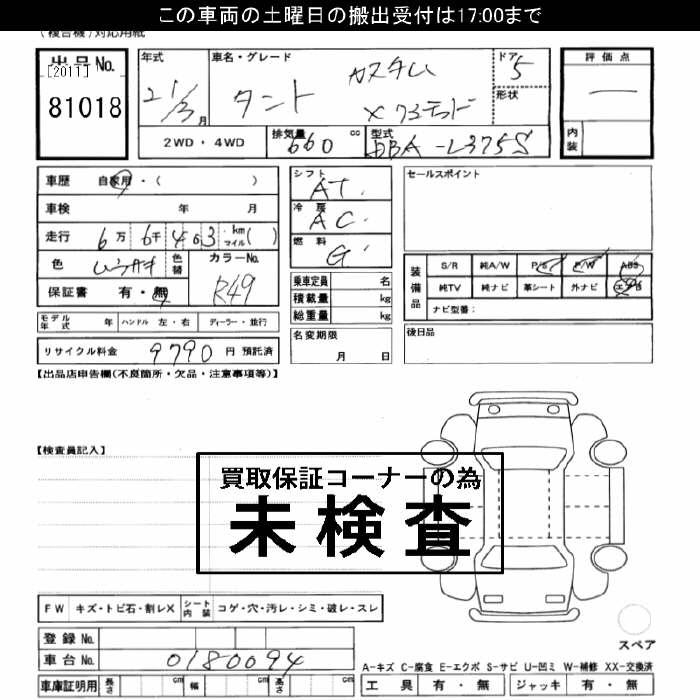 この車両の土曜日の搬出受付は17:00まで
(複合機)対応用紙
出品No.
[2011]
81018
年式
21/3月
車名・グレード
タント カスタム
X リミテッド
ドア
5
形状
評価点
内装
2WD・4WD
排気量 660 cc
型式 DBA-L375S
車歴 自家用・( )
車検 年 月
走行 6万6千403 km マイル( )
色 ムラサキ 色替
カラーNo.
R49
保証書 有・無
シフト AT
冷房 AC
燃料 G
乗車定員 名
積載量 kg
総重量 kg
セールスポイント
装備品
S/R 純A/W P/S P/W ABS
純TV 純ナビ 革シート 外ナビ エアB
ナビ型番:
モデル年式 年 ハンドル 左・右 ディーラー・並行
リサイクル料金 9790 円 預託済
名変期限
月 日
後日品
【出品店申告欄(不良箇所・欠品・注意事項等)】
【検査員記入】
買取保証コーナーの為
未検査
FW キズ・トビ石・割レX シート内装 コゲ・穴・汚レ・シミ・破レ・スレ
登録No.
車台No. 0180094
車庫証明用 長さ cm 幅 cm 高さ cm
スペア
A-キズ C-腐食 E-エクボ S-サビ U-凹ミ W-補修 XX-交換済
工具 有・無 ジャッキ 有・無